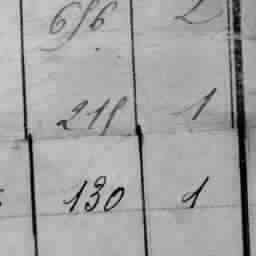 656 2
215 1
130 1